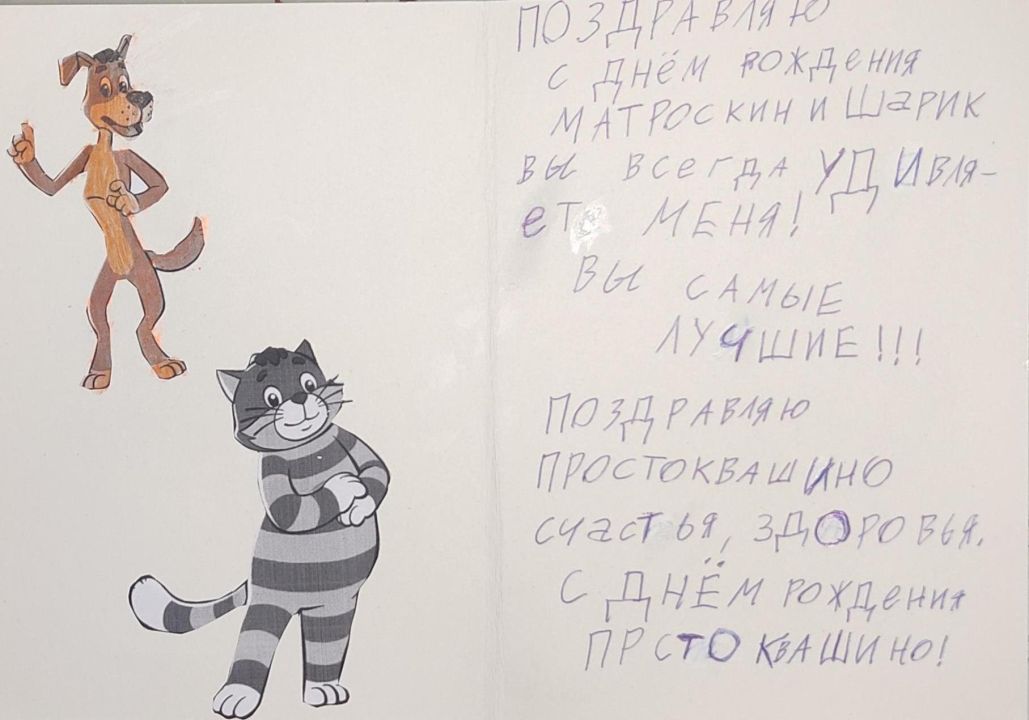 ПОЗДРАВЛЯЮ
С ДНЁМ РОЖДЕНИЯ
МАТРОСКИН И ШАРИК
ВЫ ВСЕГДА УДИВЛЯ-
ЕТЕ МЕНЯ!
ВЫ САМЫЕ
ЛУЧШИЕ!!!
ПОЗДРАВЛЯЮ
ПРОСТОКВАШИНО
СЧАСТЬЯ, ЗДОРОВЬЯ.
С ДНЁМ РОЖДЕНИЯ
ПРСТОКВАШИНО!